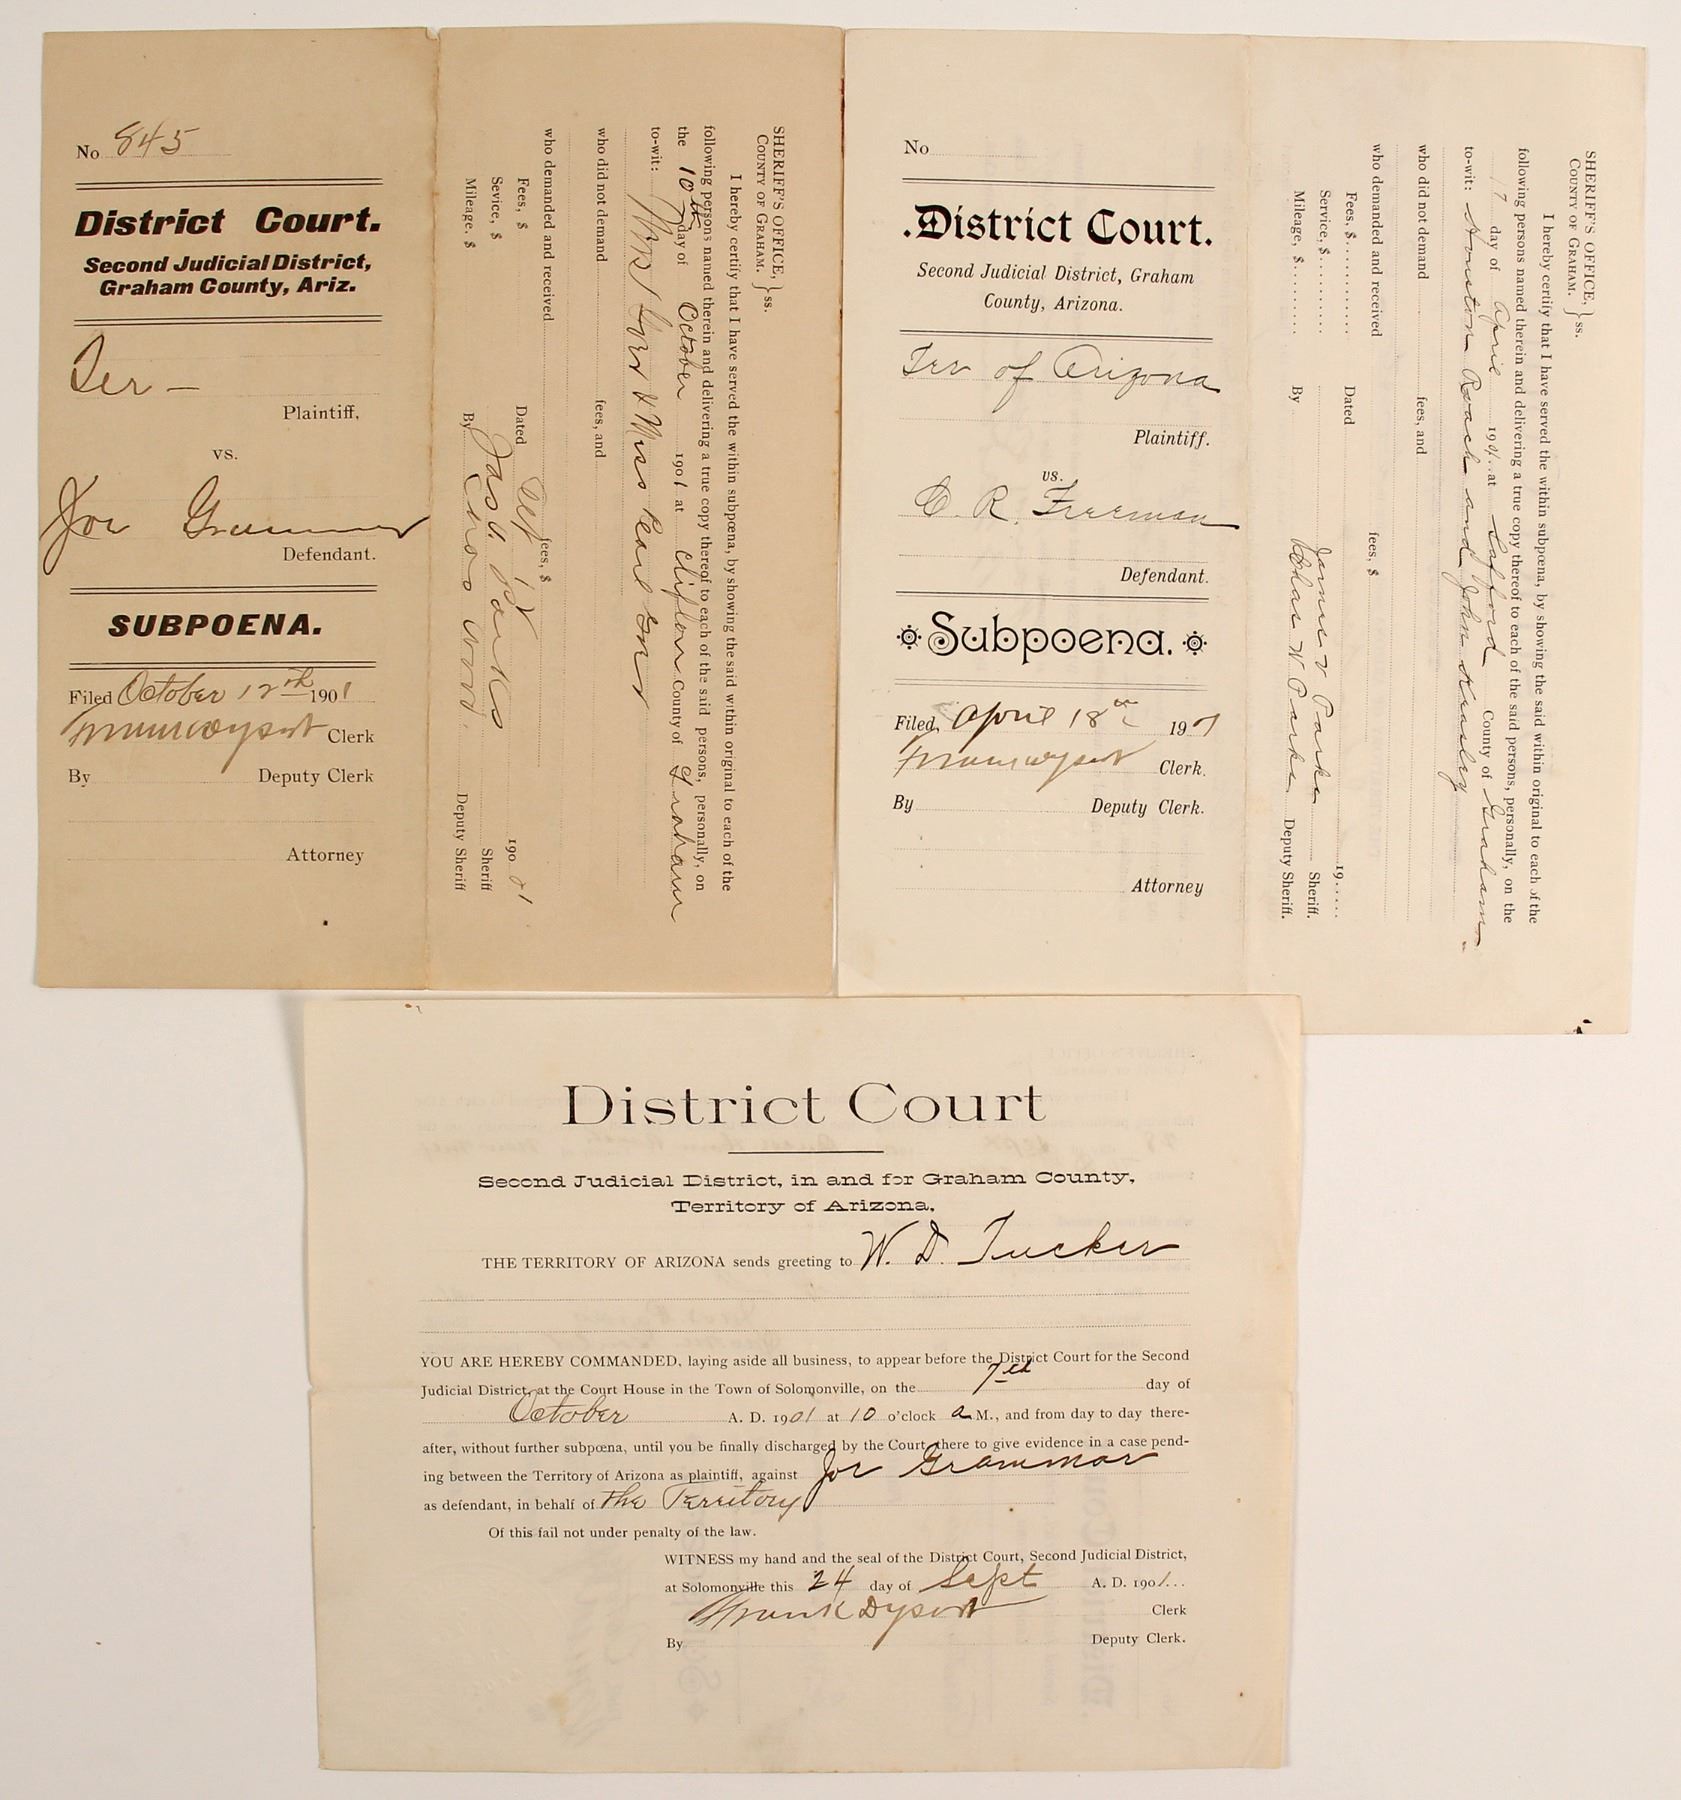 No 845
District Court.
Second Judicial District,
Graham County, Ariz.
Ter —
Plaintiff,
vs.
Joe Grammer
Defendant.
SUBPOENA.
Filed October 12th 1901
Clerk
By Deputy Clerk
Attorney
SHERIFF'S OFFICE, } ss.
COUNTY OF GRAHAM.
I hereby certify that I have served the within subpœna, by showing the said within original to each of the
following persons named therein and delivering a true copy thereof to each of the said persons, personally, on
the 10th day of October 1901 at Clifton County of Graham
to-wit: & Miss Pearl
who did not demand fees, and
who demanded and received fees, $
Fees, $ Dated 190 1
Sevice, $ Jas V. Parks Sheriff
Mileage. $ By Deputy Sheriff
No
.District Court.
Second Judicial District, Graham
County, Arizona.
Ter of Arizona
Plaintiff.
vs.
C. R. Freeman
Defendant.
Subpoena.
Filed, April 18th 1901
Clerk.
By Deputy Clerk.
Attorney
SHERIFF'S OFFICE, } ss.
COUNTY OF GRAHAM.
I hereby certify that I have served the within subpœna, by showing the said within original to each of the
following persons named therein and delivering a true copy thereof to each of the said persons, personally, on the
17 day of April 1901 at Safford County of Graham
to-wit: Houston Roach and John
who did not demand fees, and
who demanded and received fees, $
Fees, $ Dated 19
Service, $ James V Parks Sheriff.
Mileage, $ By Chas W Parks Deputy Sheriff.
District Court
Second Judicial District, in and for Graham County,
Territory of Arizona,
THE TERRITORY OF ARIZONA sends greeting to W. D. Tucker
YOU ARE HEREBY COMMANDED, laying aside all business, to appear before the District Court for the Second
Judicial District, at the Court House in the Town of Solomonville, on the 7th day of
October A. D. 1901 at 10 o'clock a M., and from day to day there-
after, without further subpœna, until you be finally discharged by the Court, there to give evidence in a case pend-
ing between the Territory of Arizona as plaintiff, against Joe Grammar
as defendant, in behalf of The Territory
Of this fail not under penalty of the law.
WITNESS my hand and the seal of the District Court, Second Judicial District,
at Solomonville this 24 day of Sept A. D. 1901
Frank Dysart Clerk
By Deputy Clerk.